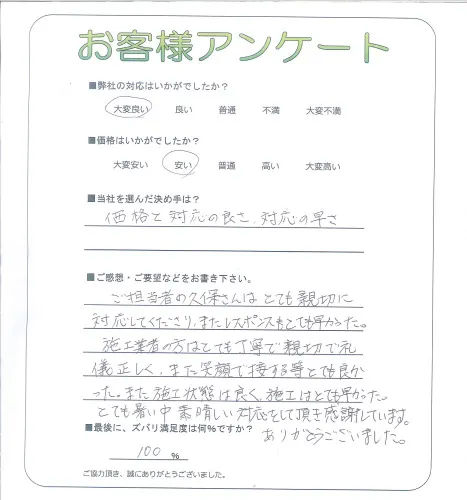 お客様アンケート
■弊社の対応はいかがでしたか?
大変良い 良い 普通 不満 大変不満
■価格はいかがでしたか?
大変安い 安い 普通 高い 大変高い
■当社を選んだ決め手は?
価格と対応の良さ、対応の早さ
■ご感想・ご要望などをお書き下さい。
ご担当者の久保さんはとても親切に
対応してくださり、またレスポンスもとても早かった。
施工業者の方はとても丁寧で親切で礼
儀正しく、また笑顔で接する等とても良か
った。また施工状態は良く、施工はとても早かった。
とても暑い中素晴しい対応をして頂き感謝しています。
ありがとうございました。
■最後に、ズバリ満足度は何%ですか?
100 %
ご協力頂き、誠にありがとうございました。